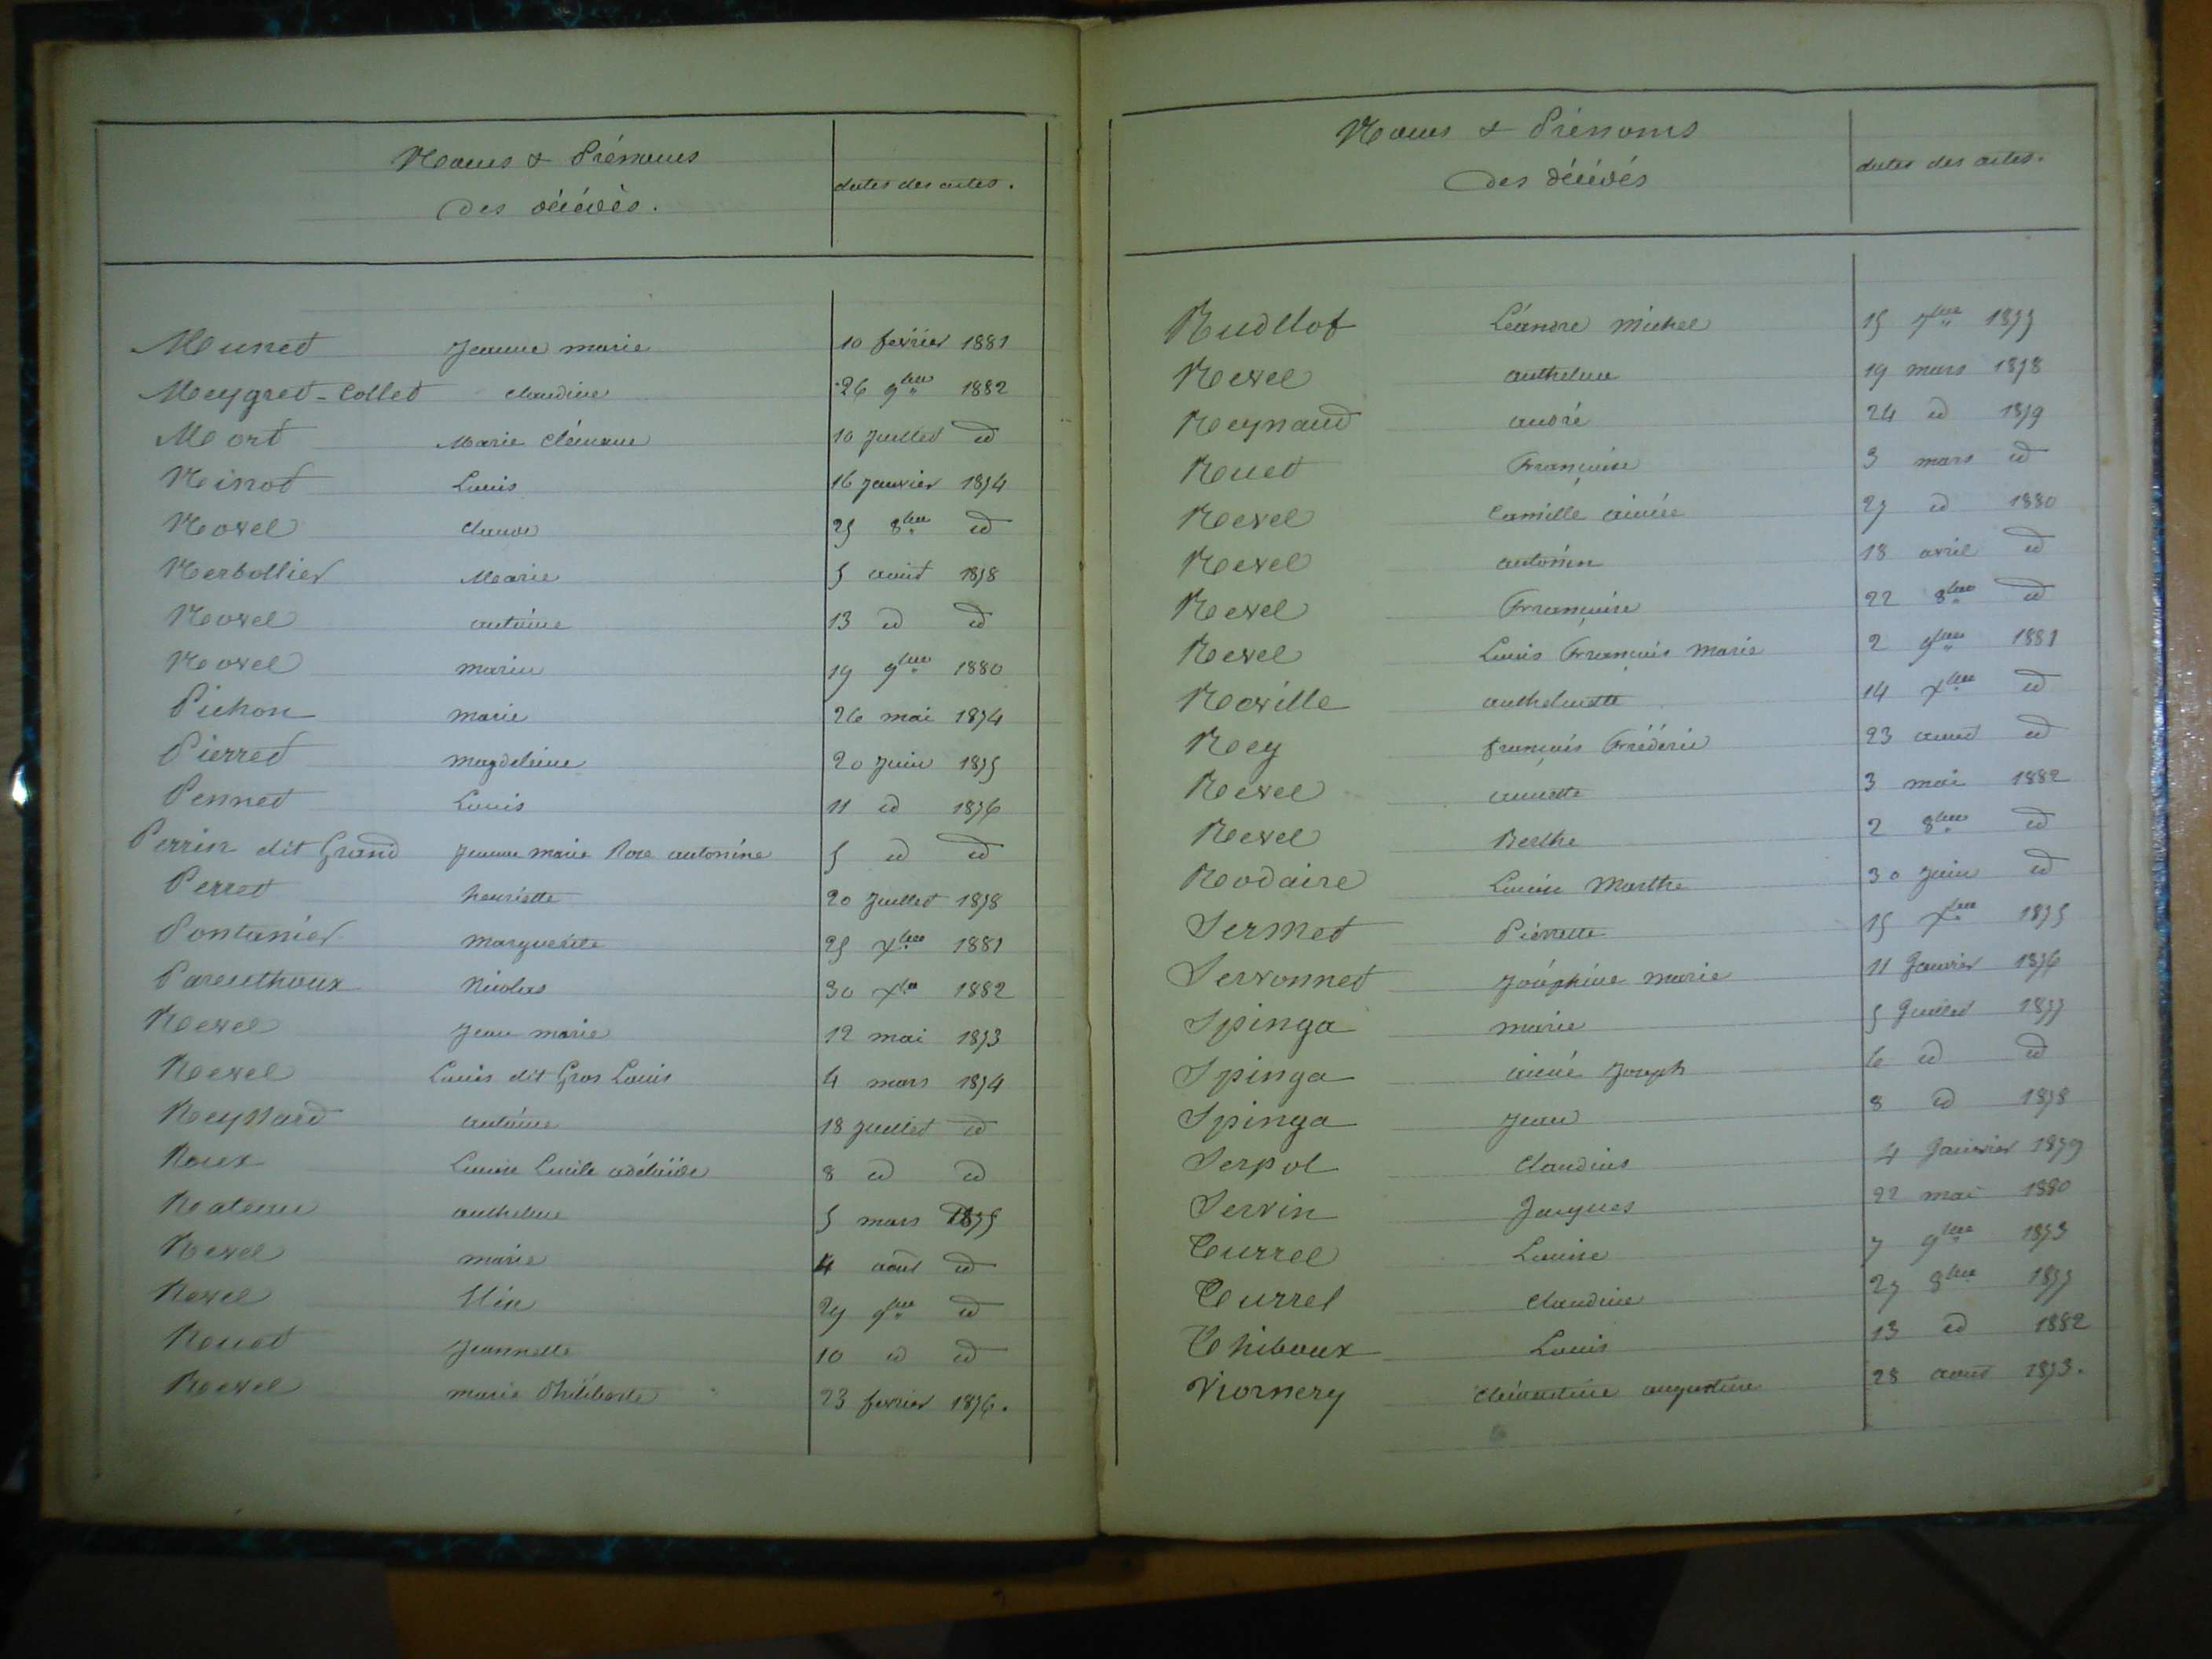 Noms & Prénoms
des décédés.
dates des actes.
Munet Jeanne marie 10 février 1881
Meygret-Collet claudine 26 9bre 1882
Mort Marie clémence 10 Juillet id
Ninot Louis 16 Janvier 1874
Novel claude 25 8bre id
Nerbollier Marie 5 août 1878
Novel antoine 13 id id
Novel marie 19 9bre 1880
Pichon marie 26 mai 1874
Pierret magdeleine 20 Juin 1875
Pennet Louis 11 id 1876
Perrin dit Grand Jeanne marie Rose antonine 5 id id
Perret henriette 20 Juillet 1878
Pontanier marguerite 25 xbre 1881
Parenthoux Nicolas 30 xbre 1882
Revel Jean marie 12 mai 1873
Revel Louis dit Gros Louis 4 mars 1874
Reynard antoine 18 Juillet id
Roux Louise Lucile adélaïde 8 id id
anthelme 5 mars 1875
Revel marie 4 août id
Revel 9bre id
Jeannette 10 id id
Revel marie Philiberte 23 février 1876.
Noms & Prénoms
des décédés
dates des actes.
Rudllof Léandre Michel 15 7bre 1877
Revel anthelme 19 mars 1878
Reynaud andré 24 id 1879
Ruet Françoise 3 mars id
Revel Camille aimée 27 id 1880
Revel antonin 18 avril id
Revel Françoise 22 8bre id
Revel Louis François Marie 2 9bre 1881
Raville anthelmette 14 xbre id
Rey françois Frédéric 23 août id
Revel annette 3 mai 1882
Revel Berthe 2 8bre id
Rodaire Marthe 30 Juin id
Sermet Pierrette 15 xbre 1875
Servonnet Joséphine marie 11 Janvier 1876
Spinga marie 5 Juillet 1877
Spinga aimé Joseph 6 id id
Spinga Jean 8 id 1878
Serpol Claudius 4 Janvier 1879
Servin Jacques 22 mai 1880
Turrel Louise 7 9bre 1873
Turrel Claudine 27 8bre 1877
Thiboux Louis 13 id 1882
Viornery clémentine augustine 28 août 1873.